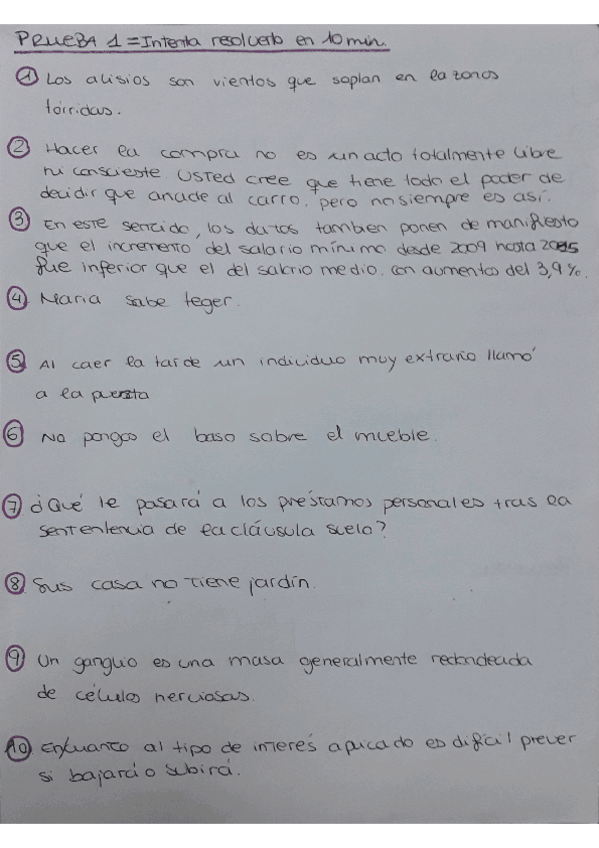 PRUEBA 1 = Intenta resolverlo en 10 min.
① Los alisios son vientos que soplan en la zonas
tórridas.
② Hacer la compra no es un acto totalmente libre
ni consciente Usted cree que tiene todo el poder de
decidir que anade al carro, pero no siempre es así.
③ En este sentido, los datos tambien ponen de manifiesto
que el incremento del salario mínimo desde 2009 hasta 2015
fue inferior que el del salario medio, con aumento del 3,9%.
④ Maria sabe teger.
⑤ Al caer la tarde un individuo muy extraño llamó
a la puerta
⑥ No pongas el baso sobre el mueble.
⑦ ¿Qué le pasará a los préstamos personales tras la
sentencia de la cláusula suelo?
⑧ Sus casa no tiene jardín.
⑨ Un ganglio es una masa generalmente redondeada
de células nerviosas.
⑩ En cuanto al tipo de interés aplicado es difícil prever
si bajará o subirá.